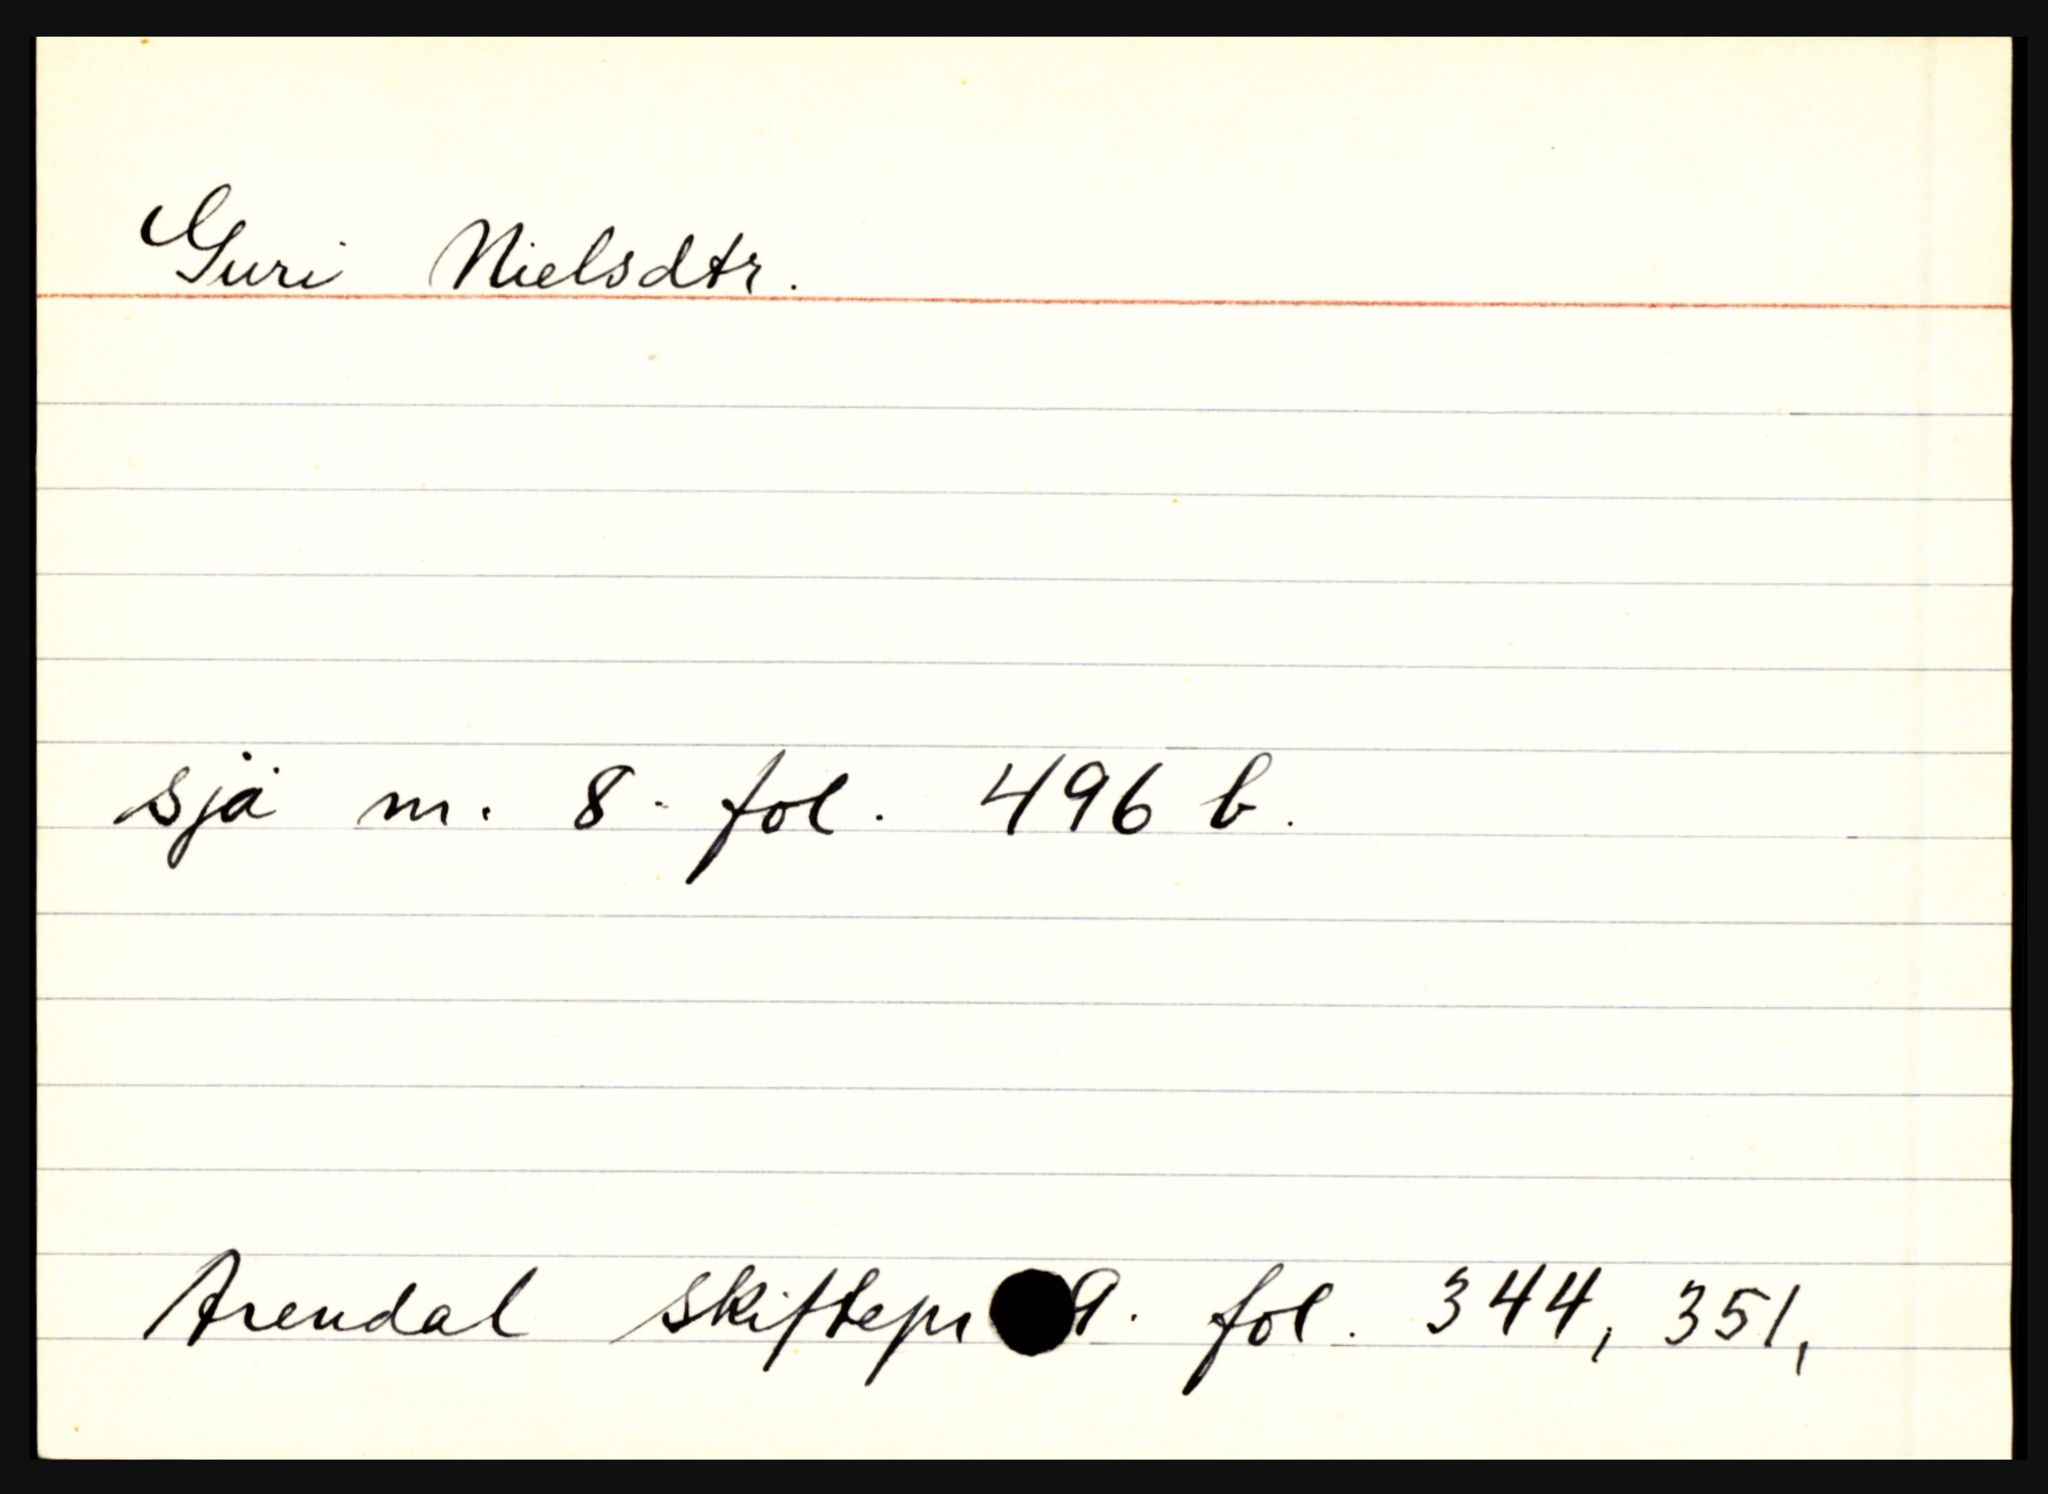 Guri Nielsdtr.
sjå nr. 8. fol. 496 b.
Arendal skiftepr 9. fol. 344, 351,